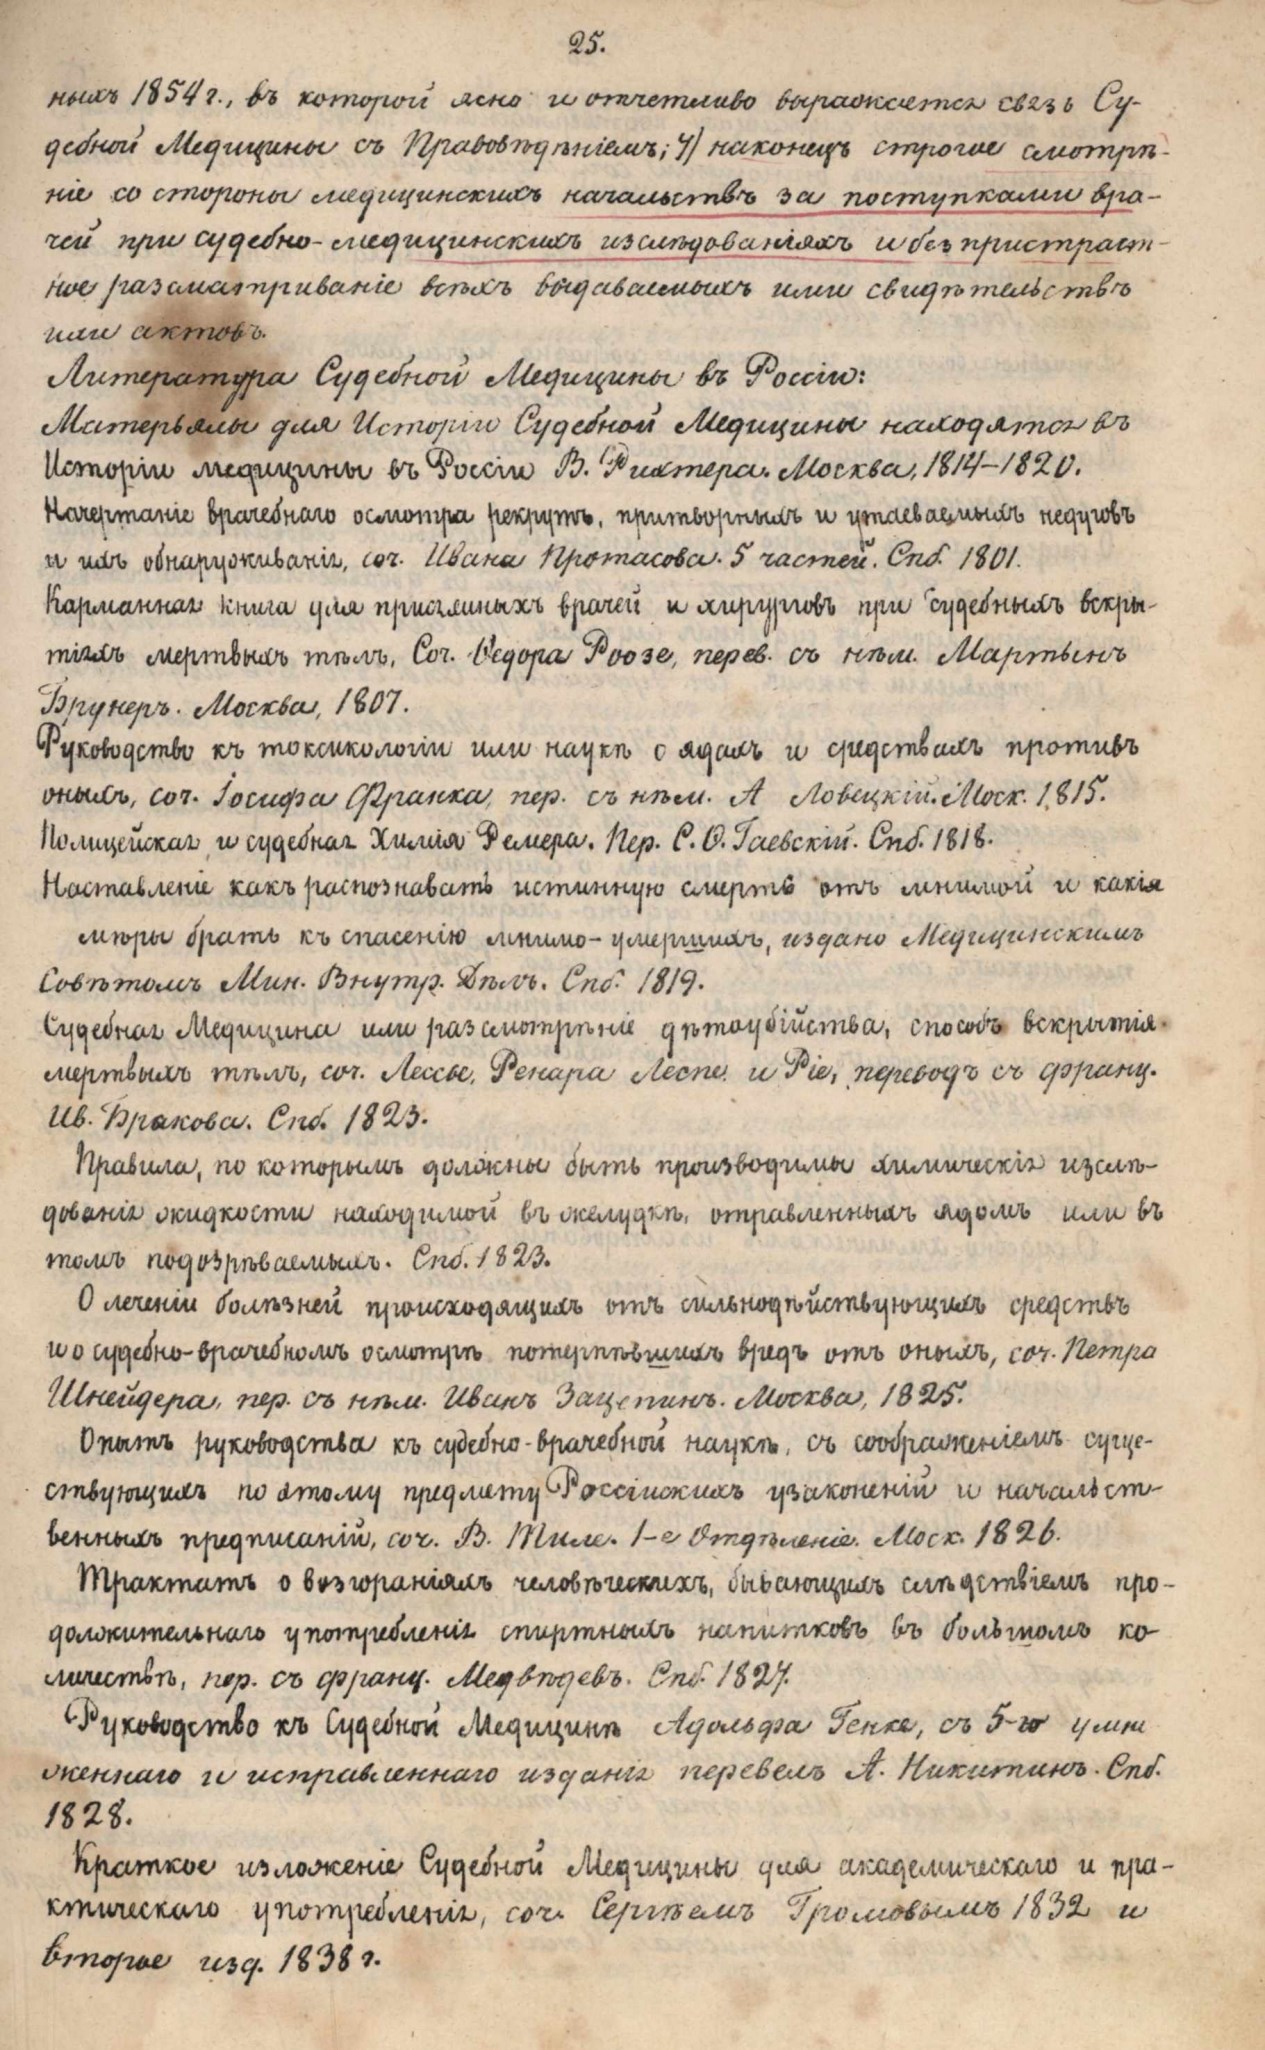 25.
ныхъ 1854 г., въ которой ясно и отчетливо выражается связь Су-
дебной Медицины съ Правовѣдѣніемъ; 4) наконецъ строгое смотрѣ-
ніе со стороны медицинскихъ начальствъ за поступками вра-
чей при судебно-медицинскихъ изслѣдованіяхъ и безпристраст-
ное разсматриваніе всѣхъ выдаваемыхъ ими свидѣтельствъ
или актовъ.
Литература Судебной Медицины въ Россіи:
Матерьялы для Исторіи Судебной Медицины находятся въ
Исторіи медицины въ Россіи В. Рихтера. Москва, 1814–1820.
Начертаніе врачебнаго осмотра рекрутъ, притворныхъ и утаеваемыхъ недуговъ
и ихъ обнаруживанія, соч. Ивана Протасова. 5 частей. Спб. 1801.
Карманная книга для присяжныхъ врачей и хирурговъ при судебныхъ вскры-
тіяхъ мертвыхъ тѣлъ, Соч. Ѳедора Роозе, перев. съ нѣм. Мартынъ
Брунеръ. Москва, 1807.
Руководство къ токсикологіи или наукѣ о ядахъ и средствахъ противъ
оныхъ, соч. Іосифа Франка, пер. съ нѣм. А Ловецкій. Моск. 1815.
Полицейская и судебная Химія Ремера. Пер. С. Ѳ. Гаевскій. Спб. 1818.
Наставленіе какъ распознавать истинную смерть отъ мнимой и какія
мѣры брать къ спасенію мнимо-умершихъ, издано Медицинскимъ
Совѣтомъ Мин. Внутр. Дѣлъ. Спб. 1819.
Судебная Медицина или разсмотрѣніе дѣтоубійства, способъ вскрытія
мертвыхъ тѣлъ, соч. Лессье, Ренара Леспе и Ріе, переводъ съ франц.
Ив. Бракова. Спб. 1823.
Правила, по которымъ должны быть производимы химическія изслѣ-
дованія жидкости находимой въ желудкѣ, отравленныхъ ядомъ или въ
томъ подозрѣваемыхъ. Спб. 1823.
О леченіи болѣзней происходящихъ отъ сильнодѣйствующихъ средствъ
и о судебно-врачебномъ осмотрѣ потерпѣвшихъ вредъ отъ оныхъ, соч. Петра
Шнейдера, пер. съ нѣм. Иванъ Зацепинъ. Москва, 1825.
Опытъ руководства къ судебно-врачебной наукѣ, съ соображеніемъ суще-
ствующихъ по этому предмету Россійскихъ узаконеній и начальст-
венныхъ предписаній, соч. В. Тиле. 1-е Отдѣленіе. Моск. 1826.
Трактатъ о возгораніяхъ человѣческихъ, бывающихъ слѣдствіемъ про-
должительнаго употребленія спиртныхъ напитковъ въ большомъ ко
личествѣ, пер. съ франц. Медвѣдевъ. Спб. 1827.
Руководство къ Судебной Медицинѣ Адольфа Генке, съ 5-го умно
женнаго и исправленнаго изданія перевелъ А. Никитинъ. Спб.
1828.
Краткое изложеніе Судебной Медицины для академическаго и пра-
ктическаго употребленія, соч. Сергѣемъ Громовымъ 1832 и
второе изд. 1838 г.